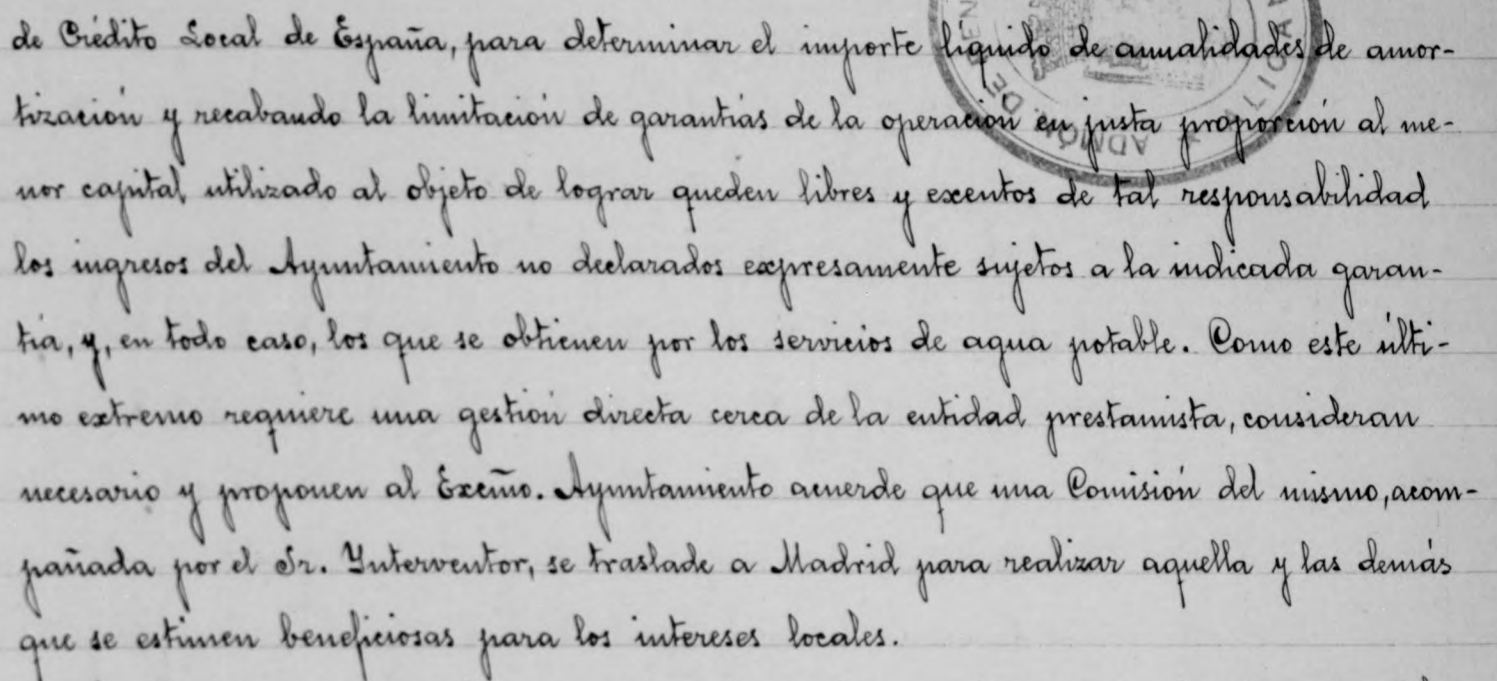 de Crédito Local de España, para determinar el importe líquido de anualidades de amor-
tización y recabando la limitación de garantías de la operación en justa proporción al me-
nor capital utilizado al objeto de lograr queden libres y exentos de tal responsabilidad
los ingresos del Ayuntamiento no declarados expresamente sujetos a la indicada garan-
tía, y, en todo caso, los que se obtienen por los servicios de agua potable. Como este últi-
mo extremo requiere una gestión directa cerca de la entidad prestamista, consideran
necesario y proponen al Excmo. Ayuntamiento acuerde que una Comisión del mismo, acom-
pañada por el Sr. Interventor, se traslade a Madrid para realizar aquella y las demás
que se estimen beneficiosas para los intereses locales.